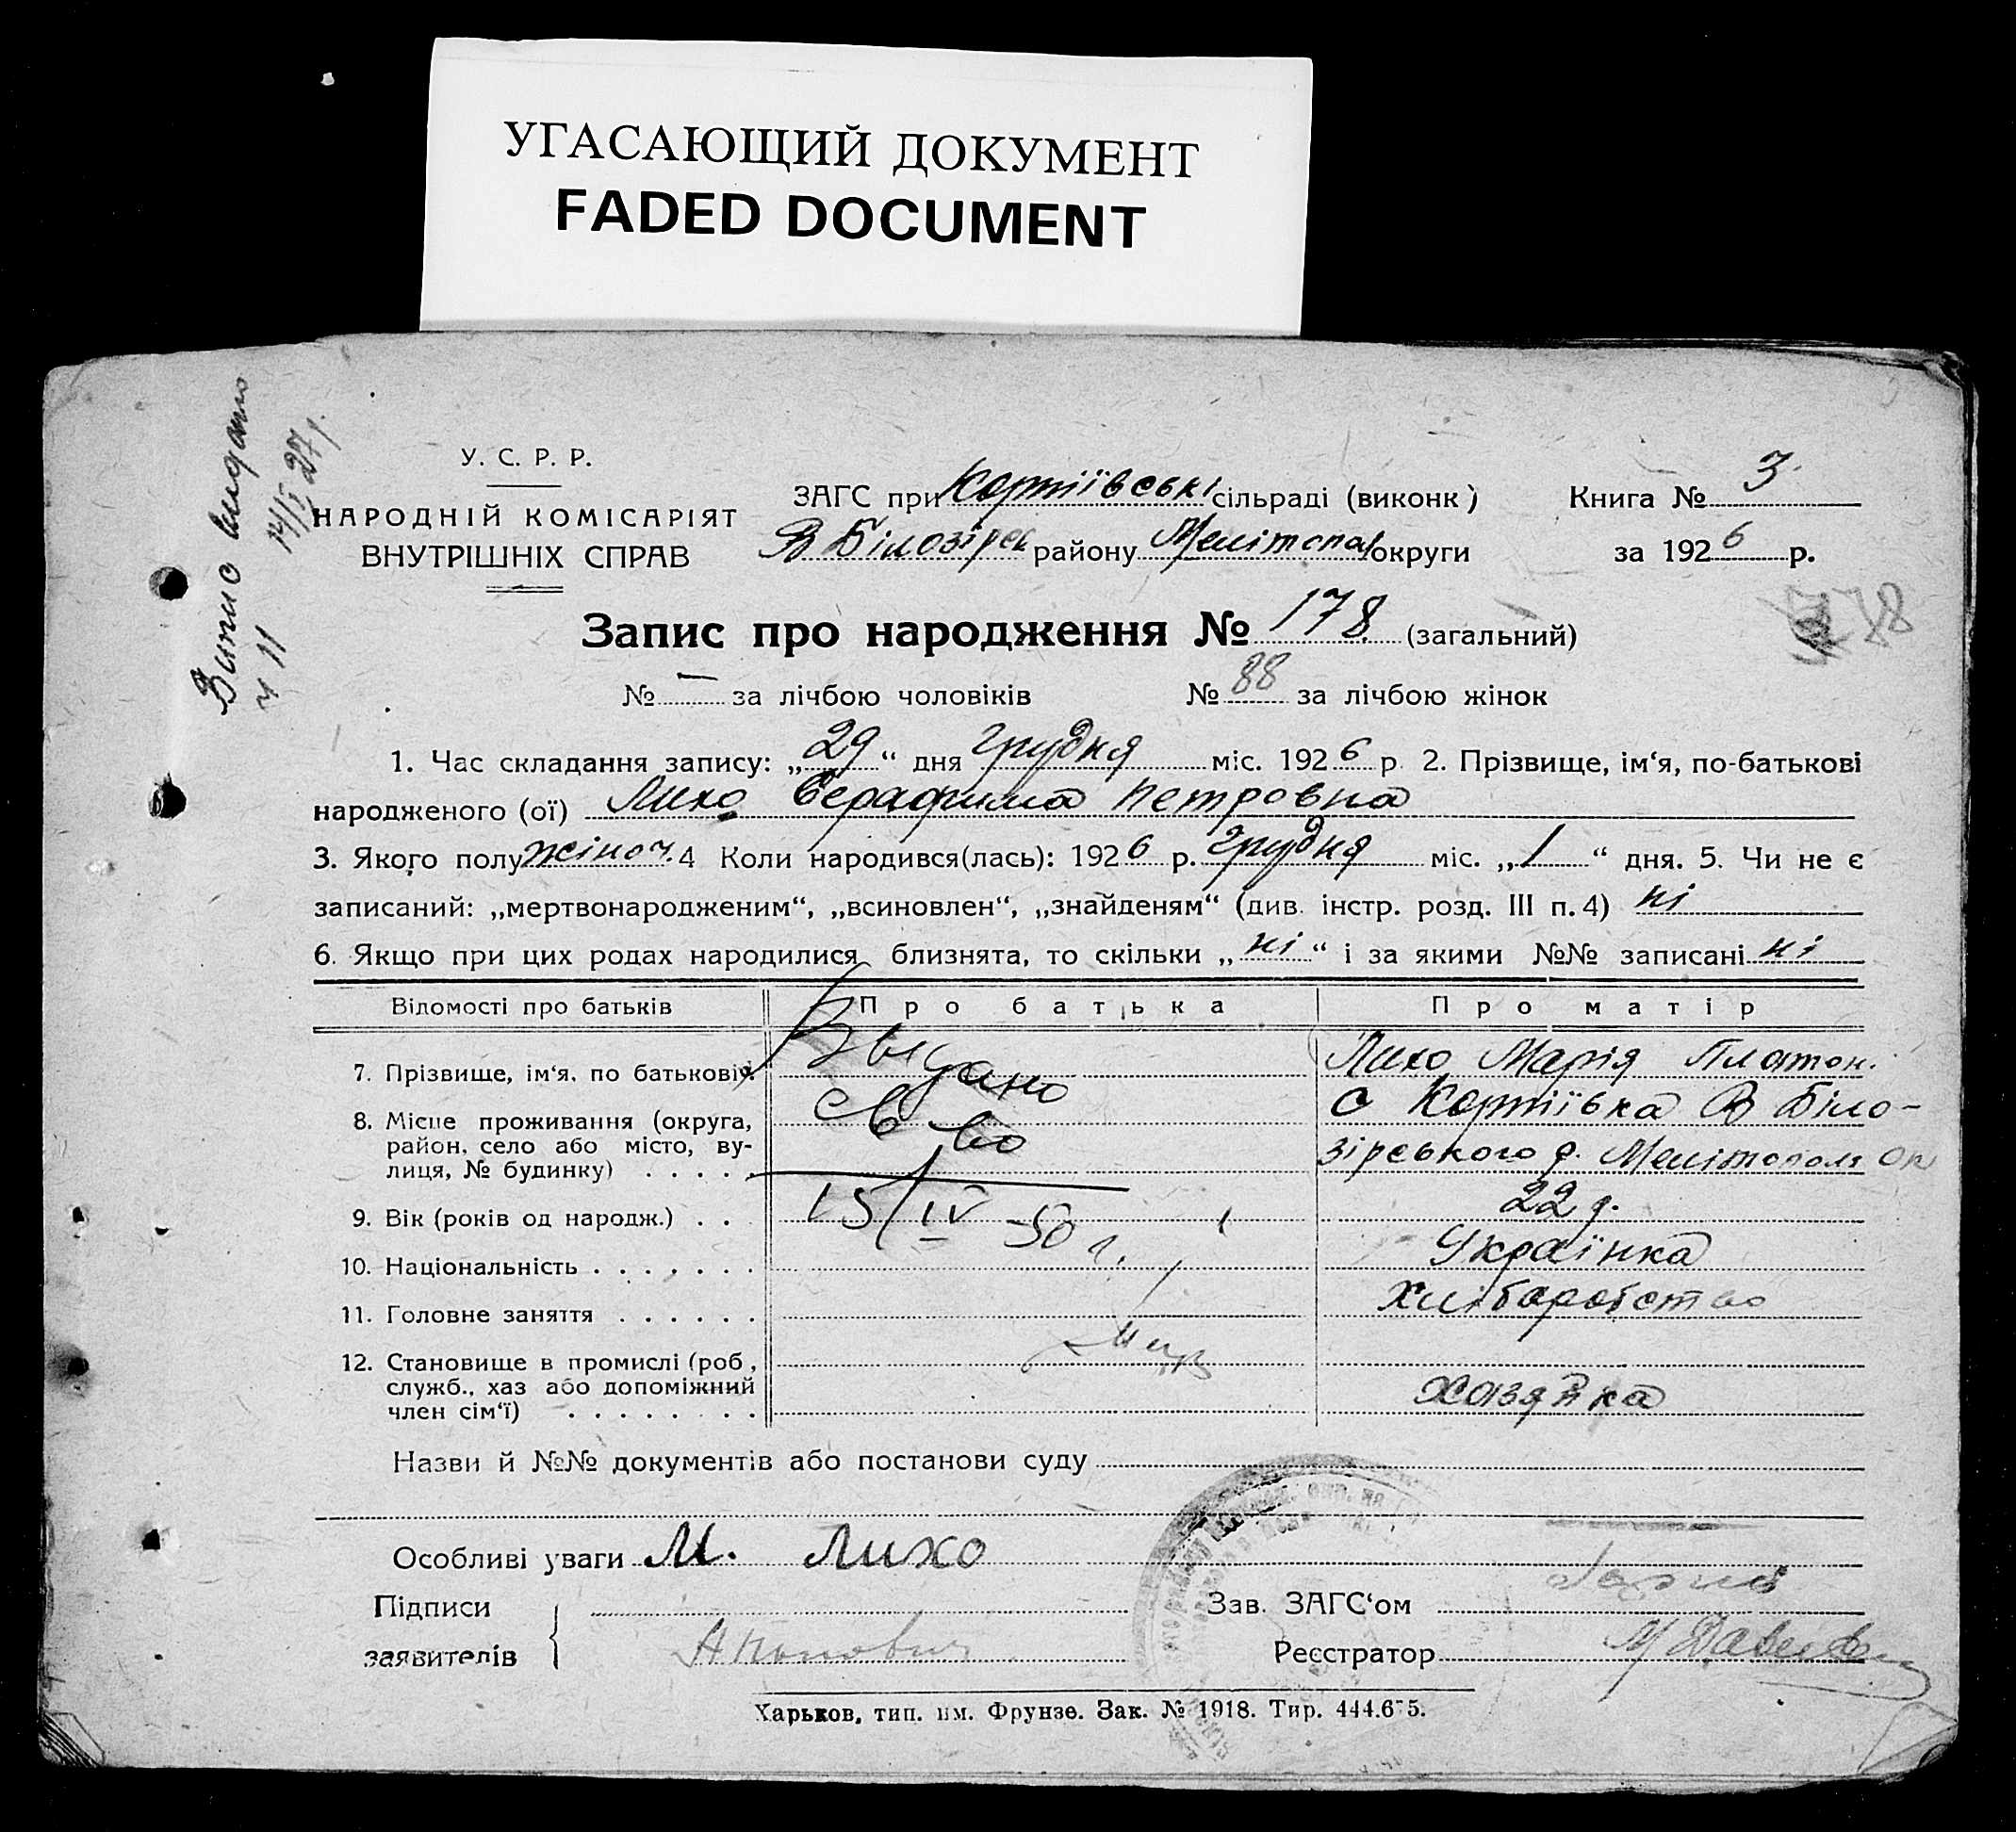 УГАСАЮЩИЙ ДОКУМЕНТ
FADED DOCUMENT
Випис видано
14/I 27 р.
ч 11
У. С. Р. Р.
НАРОДНІЙ КОМІСАРІЯТ
ВНУТРІШНІХ СПРАВ
ЗАГС при сільраді (виконк)
Книга № 3
В Білозірск району Мелітопол округи
за 1926 р.
Запис про народження № 178 (загальний)
178
№ — за лічбою чоловіків № 88 за лічбою жінок
1. Час складання запису: „29“ дня грудня міс. 1926 р. 2. Прізвище, ім‘я, по-батькові
народженого (ої) Лихо Серафима Петровна
3. Якого полу жіноч. 4 Коли народився(лась): 1926 р. грудня міс. „1“ дня. 5. Чи не є
записаний: „мертвонародженим“, „всиновлен“, „знайденям“ (див. інстр. розд. III п. 4) ні
6. Якщо при цих родах народилися близнята, то скільки „ні“ і за якими №№ записані ні
Відомості про батьків Про батька Про матір
7. Прізвище, ім‘я, по батькові. Лихо Марія Платон.
Выдано
св во
15/IV 50 г.
8. Місце проживання (округа, район, село або місто, вулиця, № будинку) . . . . .
с В Біло-
зірського р. Мелітополь ок
9. Вік (років од народж.) . . . 22 р.
10. Національність . . . . . . . Українка
11. Головне заняття . . . . . . Хліборобство
12. Становище в промислі (роб.,
служб., хаз або допоміжний
член сім‘ї) . . . . . . . . хазяйка
Назви й №№ документів або постанови суду
Особливі уваги М. Лихо
Підписи
заявителів
А Попович
Зав. ЗАГС‘ом
Реєстратор
Харьков, тип. им. Фрунзе. Зак. № 1918. Тир. 444.675.